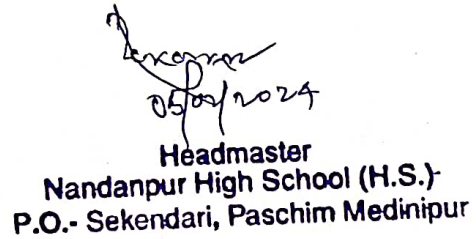 Headmaster
Nandanpur High School (H.S.)
P.O.- Sekendari, Paschim Medinipur